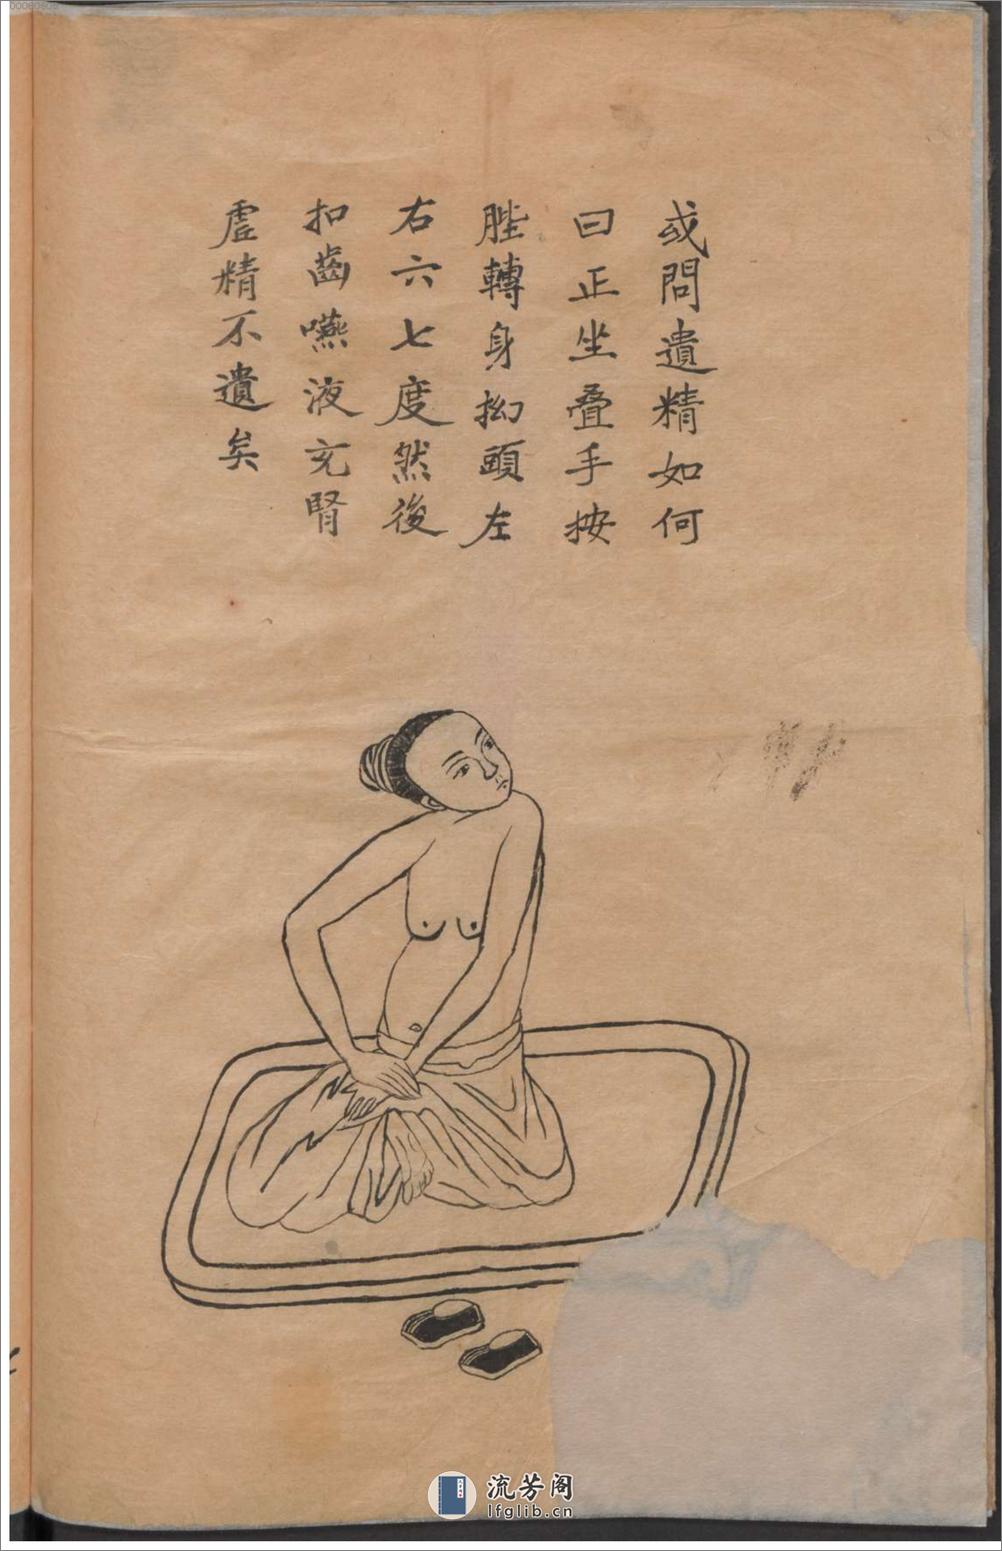 或問遺精如何
曰正坐叠手按
䏶轉身拗頭左
右六七度然後
扣齒嚥液充腎
虛精不遺矣
流芳阁
lfglib.cn